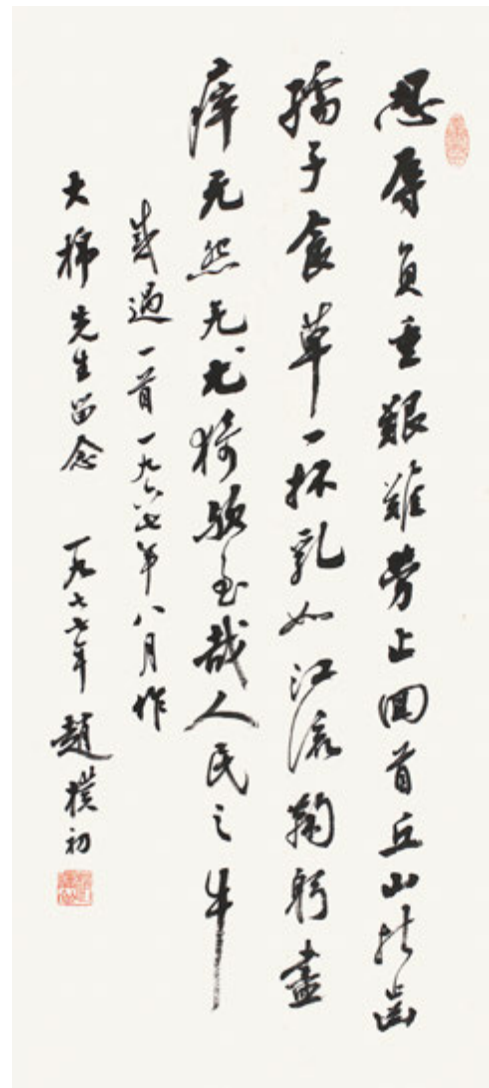 忍辱負重艱難勞止回首丘山折齒
孺子食草一杯乳如江流鞠躬盡
瘁无怨无尤猗歟至哉人民之牛
感遇一首一九六七年八月作
大 先生留念 一九七七年 趙樸初